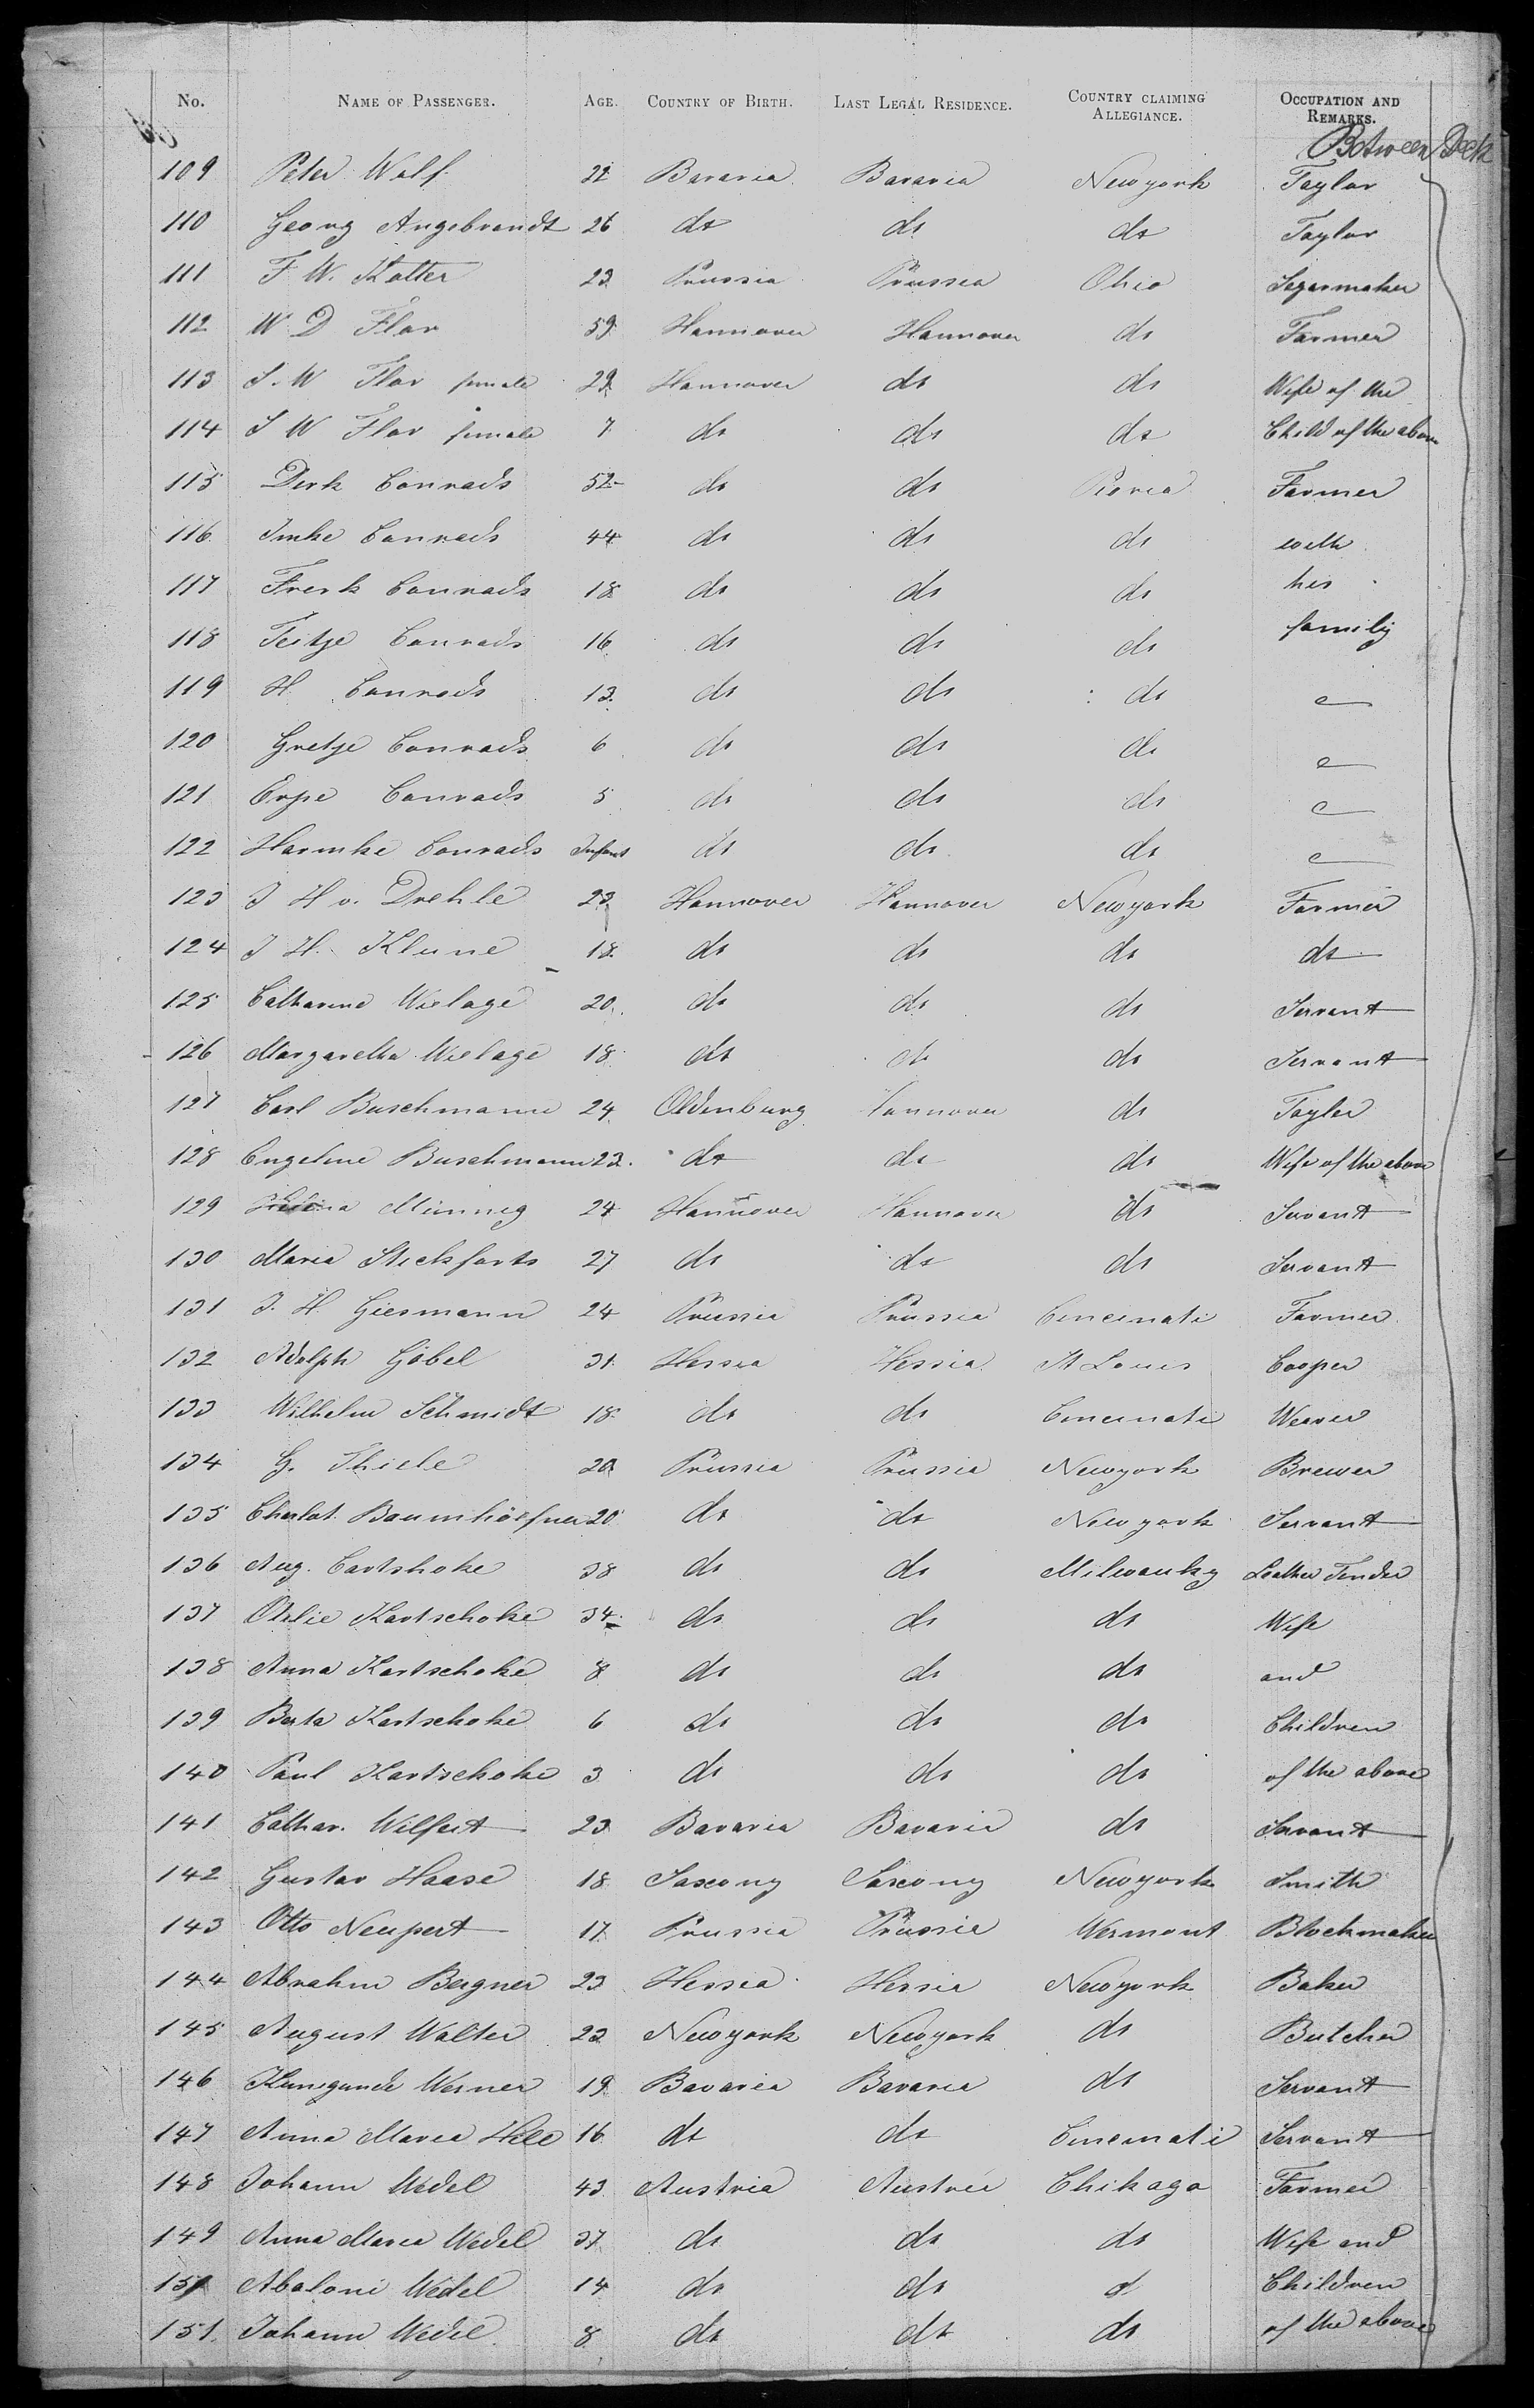 No. NAME OF PASSENGER. AGE. COUNTRY OF BIRTH. LAST LEGAL RESIDENCE. COUNTRY CLAIMING ALLEGIANCE. OCCUPATION AND REMARKS.
Between Deck
109 Peter Wolf 22 Bavaria Bavaria Newyork Taylor
110 Georg Angebrandt 26 do do do Taylor
111 F W. Kotter 23 Prussia Prussia Ohio Segarmaker
112 W D Flor 59 Hannover Hannover do Farmer
113 S. W Flor female 29 Hannover do do Wife of the
114 S W Flor female 7 do do do Child of the above
115 Dirk Conrads 52 do do Peoria Farmer
116 Imke Conrads 44 do do do with
117 Frerk Conrads 18 do do do his
118 Teitje Conrads 16 do do do family
119 H. Conrads 13 do do do
120 Gretje Conrads 6 do do do
121 Conrads 5 do do do
122 Harmke Conrads Infant do do do
123 J H v. Drehle 23 Hannover Hannover Newyork Farmer
124 J H. Klune 18 do do do do
125 Catharina Wielage 20 do do do Servant
126 Margaretha Wielage 18 do do do Servant
127 Carl Buschmann 24 Oldenburg Hannover do Tayler
128 Engeline Buschmann 23 do do do Wife of the above
129 Helena 24 Hannover Hannover do Servant
130 Maria 27 do do do Servant
131 J. H. Giesmann 24 Prussia Prussia Cincinati Farmer
132 Adolph Göbel 31 Hessia Hessia St Louis Cooper
133 Wilhelm Schmidt 18 do do Cincinati Weaver
134 G. Thiele 20 Prussia Prussia Newyork Brewer
135 Charlot. Baumhöefner 20 do do Newyork Servant
136 Aug. Cartshoke 38 do do Milwauky Leather Tender
137 Otilie Kartschoke 34 do do do Wife
138 Anna Kartschoke 8 do do do and
139 Berta Kartschoke 6 do do do Children
140 Paul Kartschoke 3 do do do of the above
141 Cathar. Wilfert 23 Bavaria Bavaria do Servant
142 Gustav Haase 18 Saxony Saxony Newyork Smith
143 Otto Neupert 17 Prussia Prussia Wermont Blockmaker
144 Abrahm Bergner 23 Hessia Hessia Newyork Baker
145 August Walter 22 Newyork Newyork do Butcher
146 Kunigunde Werner 19 Bavaria Bavaria do Servant
147 Anna Maria 16 do do Cincinati Servant
148 Johann Wedel 43 Austria Austria Chikago Farmer
149 Anna Maria Wedel 37 do do do Wife and
151 Abaloni Wedel 14 do do d Children
151. Johann Wedel 8 do do do of the above